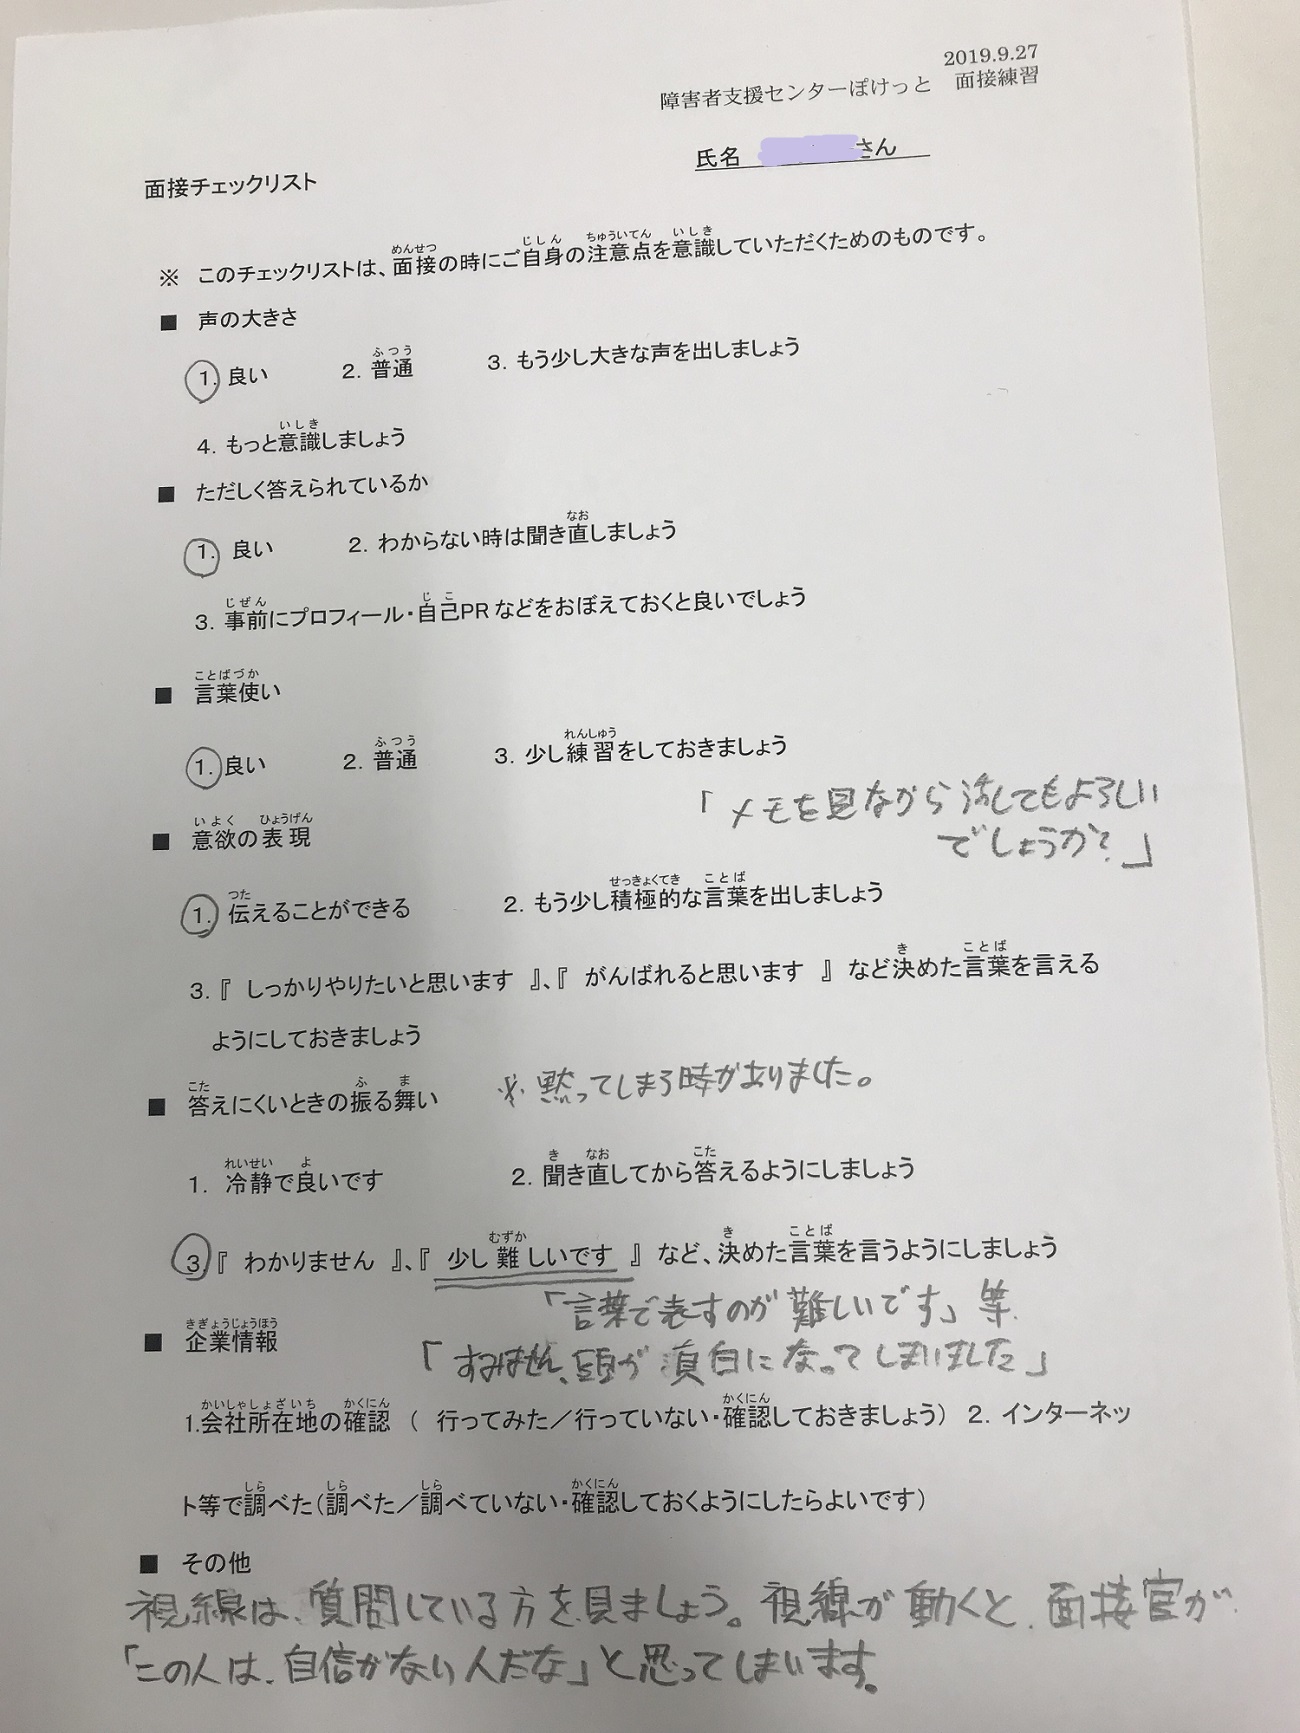 2019.9.27
障害者支援センターぽけっと　面接練習
氏名　さん
面接チェックリスト
※　このチェックリストは、面接の時にご自身の注意点を意識していただくためのものです。
■　声の大きさ
1. 良い　2. 普通　3. もう少し大きな声を出しましょう
4. もっと意識しましょう
■　ただしく答えられているか
1. 良い　2. わからない時は聞き直しましょう
3. 事前にプロフィール・自己PRなどをおぼえておくと良いでしょう
■　言葉使い
1. 良い　2. 普通　3. 少し練習をしておきましょう
「メモを見ながら話してもよろしい
でしょうか？」
■　意欲の表現
1. 伝えることができる　2. もう少し積極的な言葉を出しましょう
3.『　しっかりやりたいと思います　』、『　がんばれると思います　』など決めた言葉を言える
ようにしておきましょう
※黙ってしまう時がありました。
■　答えにくいときの振る舞い
1. 冷静で良いです　2. 聞き直してから答えるようにしましょう
3『　わかりません　』、『　少し難しいです　』など、決めた言葉を言うようにしましょう
「言葉で表すのが難しいです」等
■　企業情報
「すみません、頭が真白になってしまいました」
1.会社所在地の確認（　行ってみた／行っていない・確認しておきましょう）　2. インターネッ
ト等で調べた（調べた／調べていない・確認しておくようにしたらよいです）
■　その他
視線は、質問している方を見ましょう。視線が動くと、面接官が、
「この人は、自信がない人だな」と思ってしまいます。